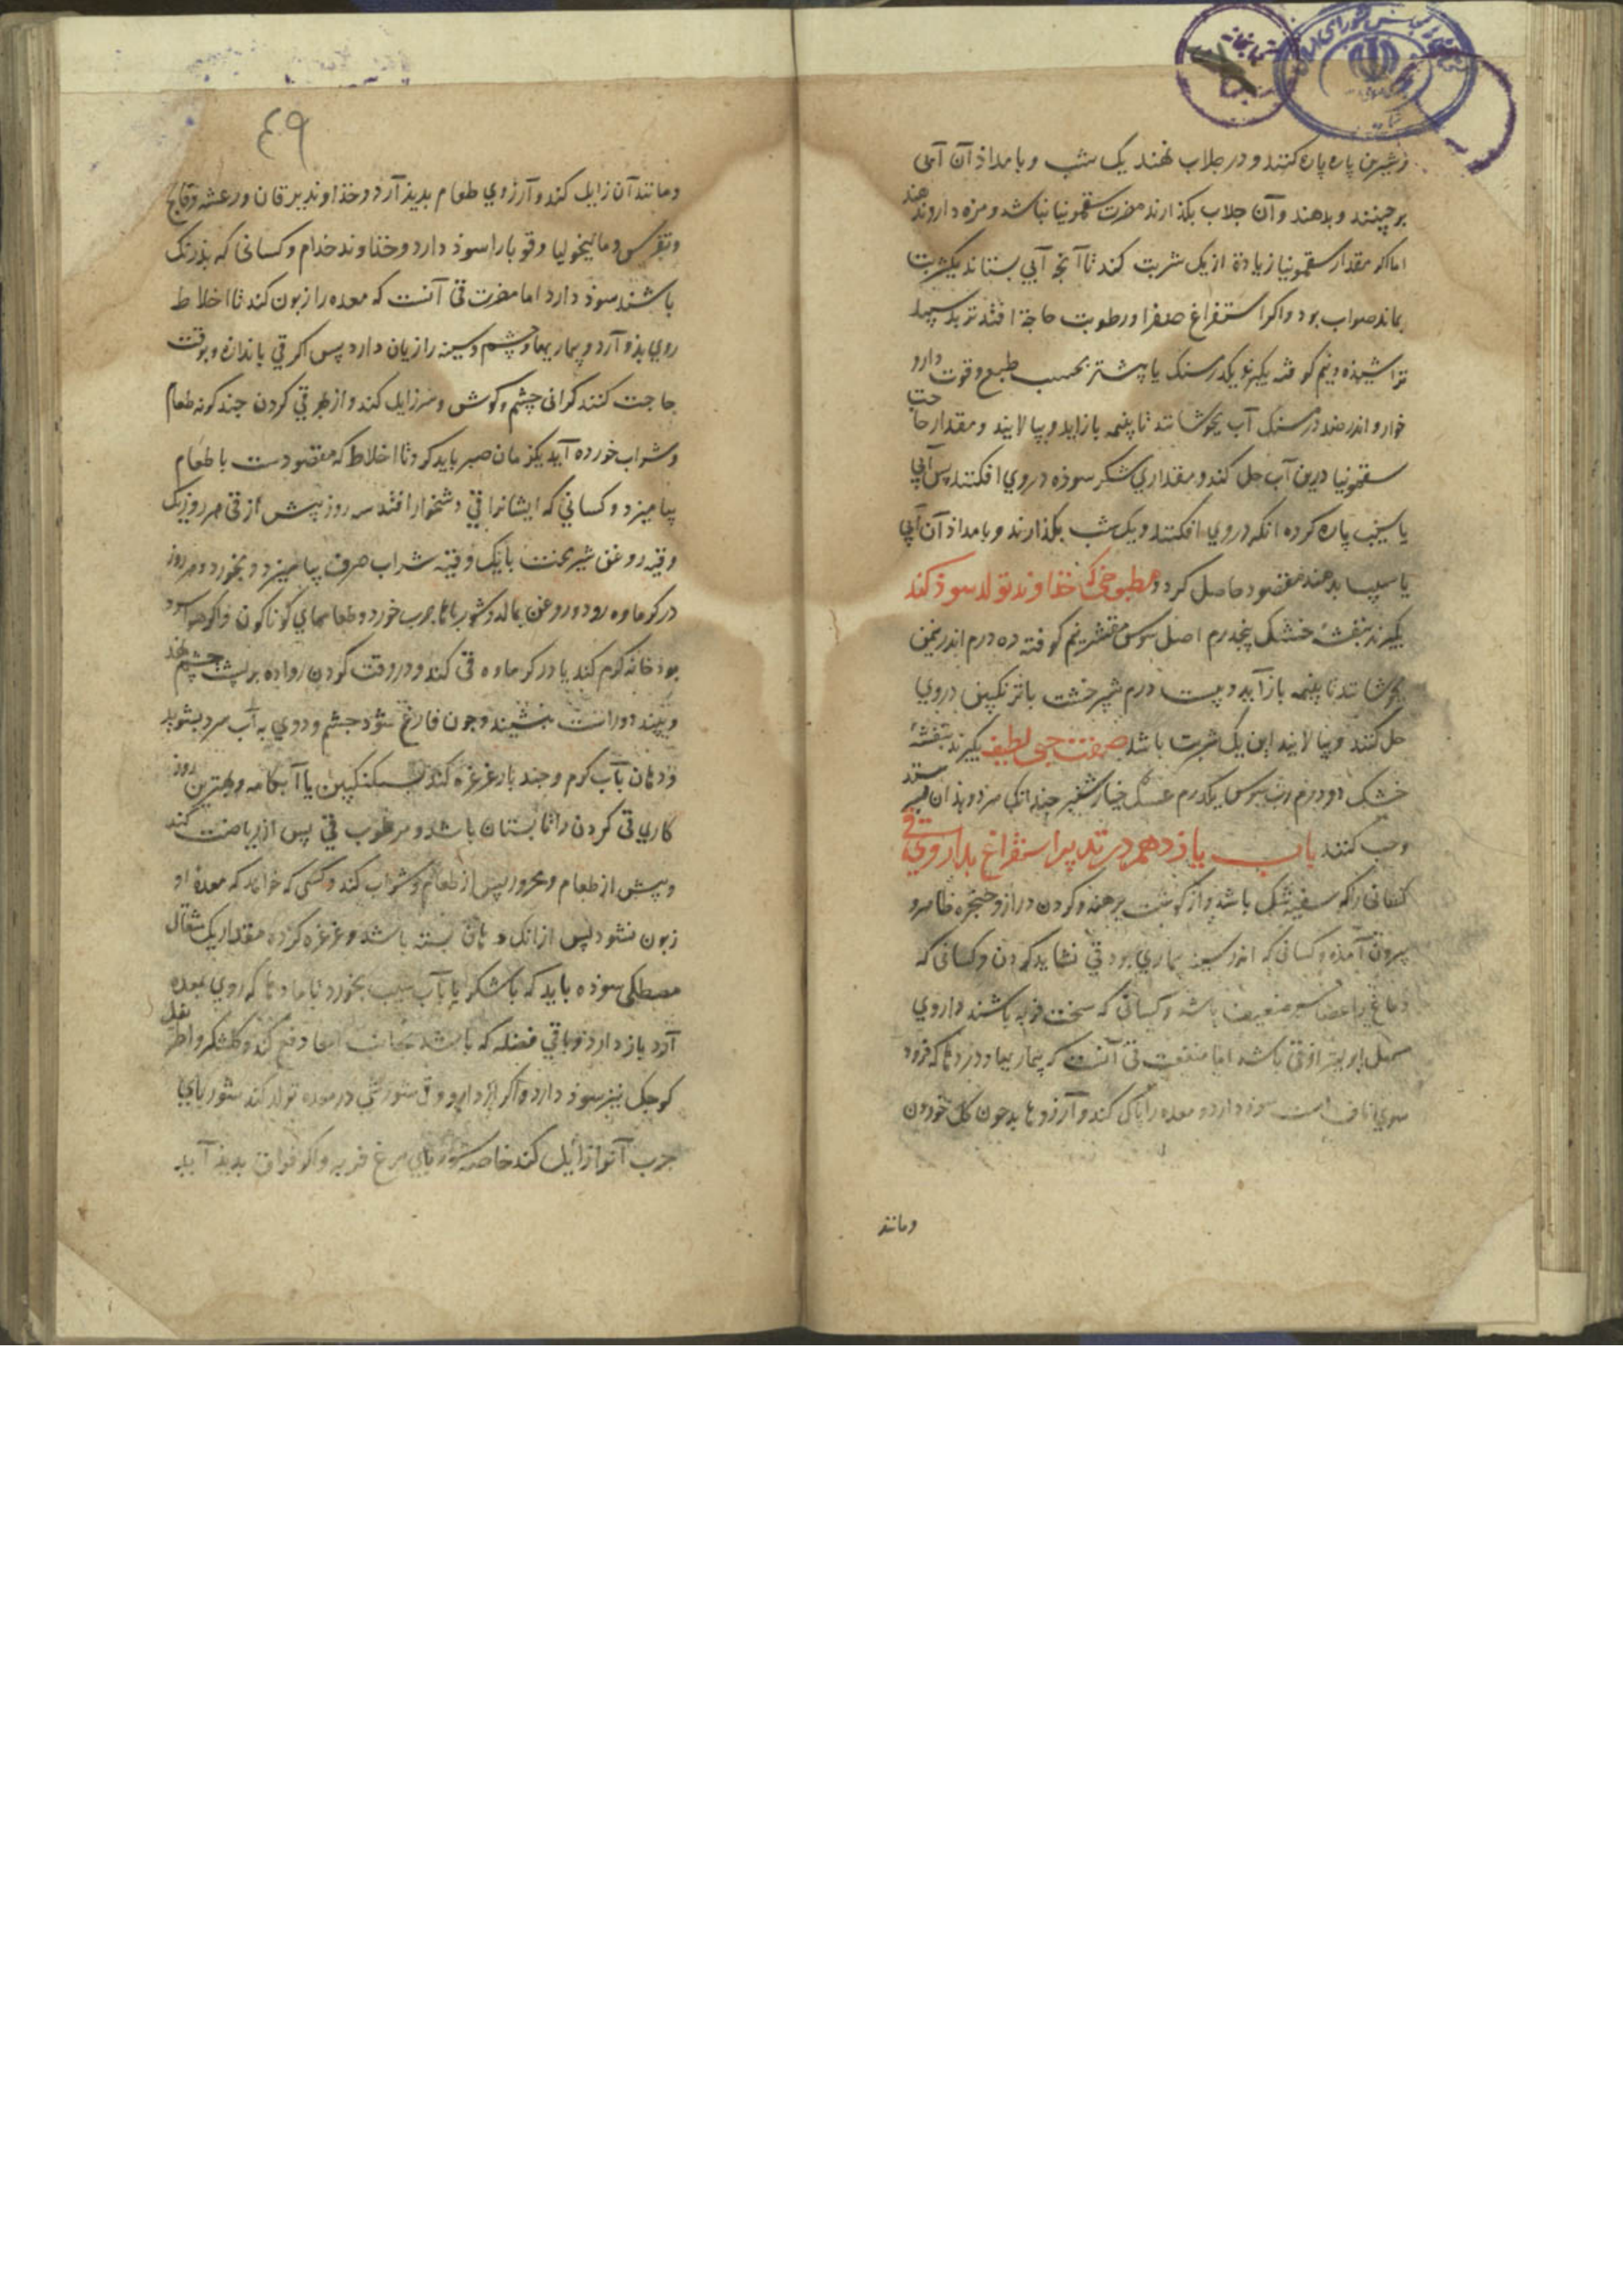 و شیرین پاره پاره کنند و در جلاب نهند یک شب و بامداذ آن آبی
برچینند و بدهند و آن جلاب بکذارند مضرت سقمونیا نباشد و مزه دارو ندهند
اما اکر مقدار سقمونیا زیادة از یک شربت کند تا آنج آبی بستاند یکشربت
بماند صواب بود و اکر استفراغ صفرا و رطوبت حاجة افتد تربد سپید
تراشیذه و نیم کوفته یکیرند یکدرمسنک یا بیشتر بحسب طبع و قوت دارو
خوار و اندر صد درمسنک آب بجوشانند تا بنیمه بازاید و بپالایند و مقدار حاجت
سقمونیا درین آب حل کند و مقداری شکر سوذه در وی افکنند پس آبی
یا سیب پاره کرده انکه در وی افکنند و یک شب بکذارند و بامداذ آن آبی
یا سیب بدهند مقصود حاصل کردد مطبوخی که خذاوند تولد سوذ کند
یکیرند بنفشه خشک پنجدرم اصل سوس مقشر نیم کوفته ده درم اندر یکمن
بجوشانند تا بنیمه باز آید و بیست درم شیرخشت یا ترنکبین در وی
حل کنند و بپالایند این یک شربت باشد صفت حبی لطیف یکیرند بنفشه
خشک دو درم رب سوس یکدرم عسل خیارشنبر چندانک بسرند و بذان بسرشند
و حب کنند باب یازدهم در تدبیر استفراغ بداروی قی
کسانی را که سینه تنک باشد و از کوشت برهنه و کردن دراز و حنجره ظاهر و
بیرون آمذه و کسانی که اندر سینه بیماری بود قی نشاید کردن و کسانی که
دماغ و اعضاء سر ضعیف باشد و کسانی که سخت فربه باشند داروی
مسهل بهتر از قی باشد اما منفعت قی آنست که بیماریها و دردها که فرود
سوی ناف است سوذ دارد و معده را پاک کند و آرزوها بد چون کل خوردن
و مانند
٤٩
و مانند آن زایل کند و آرزوی طعام بدیذ آرد و خذاوند یرقان و رعشه و فالج
و نقرس و مالیخولیا و قوبا را سوذ دارد و خذاوند جذام و کسانی که بذرنک
باشند سوذ دارد اما مضرت قی آنست که معده را زبون کند تا اخلاط
روی بذو آرد و بیماریها و چشم و سینه را زیان دارد پس اکر قی باندازه و بوقت
حاجت کنند کرانی چشم و کوش و سر زایل کند و از طریق قی کردن چند کونه طعام
و شراب خورده آید یکزمان صبر باید کرد تا اخلاط که مقصودست با طعام
بیامیزد و کسانی که ایشانرا قی دشخوار افتد سه روز پیش از قی هر روز یک
وقیه روغن شیربخت با یک وقیه شراب صرف بیامیزد و بخورد و هر روز
در کرماوه رود و روغن بمالد و شورباها چرب خورد و طعامهای کوناکون و اکر هوا سرد
بود خانه کرم کند یا در کرماوه قی کند و در وقت کردن رفاده بر پشت چشم نهد
و ببندد و راست بنشیند و چون فارغ شود چشم و روی به آب سرد بشوید
و دهان بآب کرم و چند بار غرغره کند بسکنکبین یا آبکامه و بهترین روز
کاری قی کردن را تابستان باشد و مرطوب قی پس از ریاضت کند
و پیش از طعام و محرور پس از طعام و شراب کند و کسی که خواهد که معده او
زبون نشود پس از آنک دهان شسته باشد و غرغره کرده مقدار یک مثقال
مصطکی سوذه باید که با شکر یا بآب سیب بخورد تا مادها که روی بمعده
آرد باز دارد و باقی فضله که باشد بجانب امعا دفع کند و کلشکر و اطریفل
کوچک نیز سوذ دارد و اکر از دارو و قی سوزشی در معده تولد کند شوربای
چرب آنرا زایل کند خاصه شوربای مرغ فربه و اکر فواق بدیذ آید